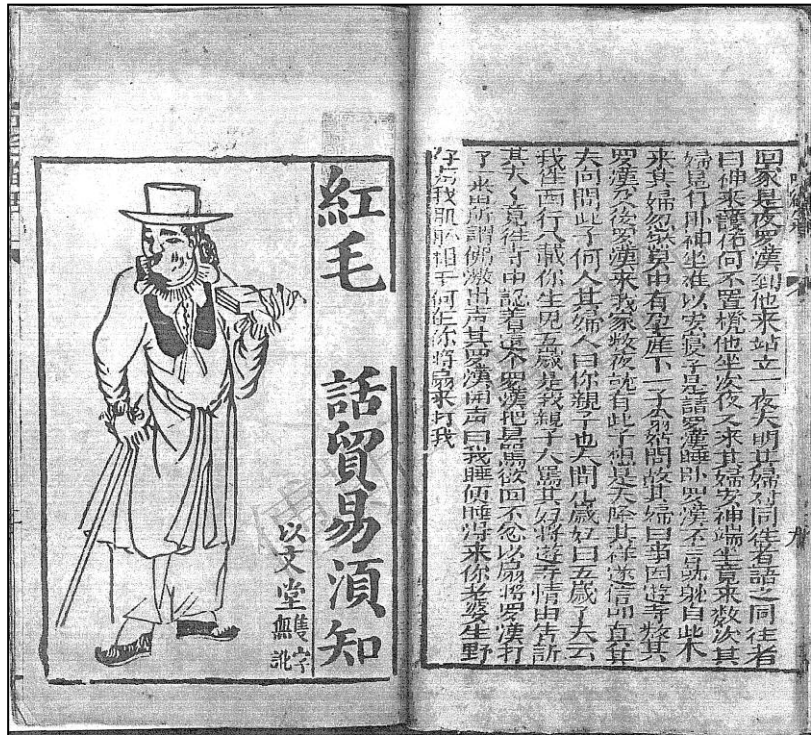 回家是夜罗漢到他來站立一夜天明其婦對同往者語之同往者
曰神來護佑何不置櫈他坐次夜又來其婦安神端坐竟來数次其
婦見行卧神坐难以安寝于是請罗漢睡卧罗漢不言就自此木
來其婦忽然身中有孕產下一子翁然問故其婦曰事因遊寺其
罗漢及後罗漢來我家数夜就有此子想是天降其祥遂信直其
夫向問此子何人其婦人曰你親子也夫問几歲妇曰五歲了夫云
我往西行八載你生兒五歲是我親子大罵其妇將遊寺情由告訴
其夫々竟往寺中認着這个罗漢把罵欲回不忿以扇將罗漢打
了出所謂佛激出声其罗漢開声曰我睡便睡得來你老婆生野
仔与我肌相干何你將扇來打我
紅毛 話貿易須知
以文堂
隻字無訛